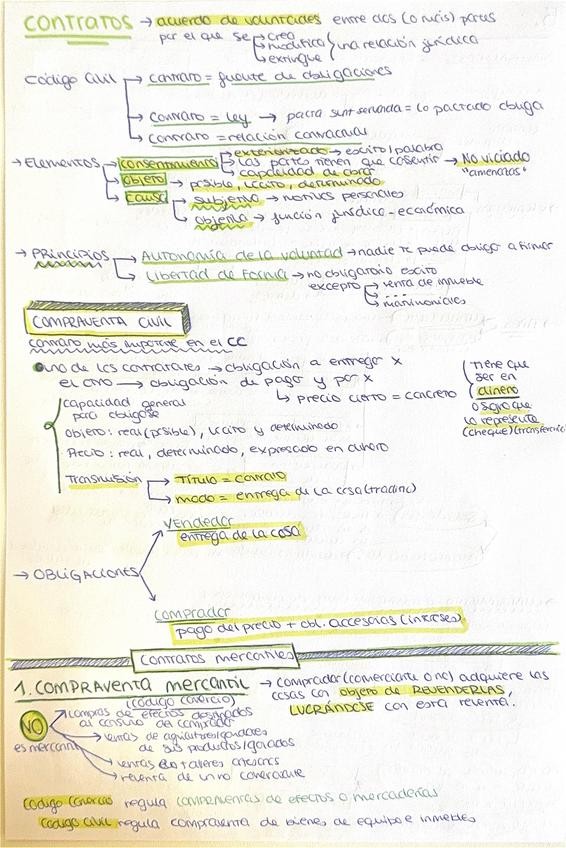 CONTRATOS → acuerdo de voluntades entre dos (o más) partes
por el que se → crea
→ modifica
→ extingue
una relación jurídica
Código Civil → contrato = fuente de obligaciones
→ contrato = ley → pacta sunt servanda = lo pactado obliga
→ contrato = relación contractual
→ Elementos → consentimiento → exteriorizado → escrito/palabra
→ las partes tienen que consentir → No viciado
→ capacidad de obrar "amenazas"
→ objeto → posible, lícito, determinado
→ causa → subjetiva → motivos personales
→ objetiva → función jurídico-económica
→ PRINCIPIOS → Autonomía de la voluntad → nadie te puede obligar a firmar
→ Libertad de Forma → no obligatorio escrito
excepto → venta de inmueble
→ ...
→ matrimoniales
COMPRAVENTA CIVIL
contrato más importante en el CC
uno de los contratantes → obligación a entregar x
el otro → obligación de pago y por x
↳ precio cierto = concreto
tiene que
ser en
dinero
o signo que
lo represente
(cheque)(transferencia
capacidad general
para obligarse
objeto: real (posible), lícito y determinado
Precio: real, determinado, expresado en dinero
Transmisión → Título = contrato
→ modo = entrega de la cosa (traditio)
→ OBLIGACIONES
vendedor
entrega de la cosa
comprador
pago del precio + obl. accesorias (intereses).
contratos mercantiles
1. COMPRAVENTA mercantil → comprador (comerciante o no) adquiere las
(código comercio)
cosas con objeto de REVENDERLAS,
LUCRÁNDOSE con esta reventa.
NO
es mercantil
→ compras de efectos destinados
al consumo del comprador
→ ventas de agricultores/ganaderos
de sus productos/ganados
→ ventas en talleres artesanos
→ reventa de un no comerciante
código comercio regula compraventas de efectos o mercaderías
código civil regula compraventa de bienes de equipo e inmuebles